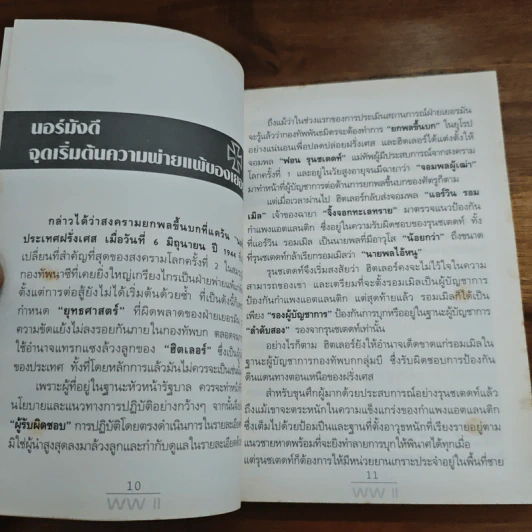 นอร์มังดี
จุดเริ่มต้นความพ่ายแพ้ของเยอ
กล่าวได้ว่าสงครามยกพลขึ้นบกที่แคว้น
ประเทศฝรั่งเศส เมื่อวันที่ 6 มิถุนายน ปี 1944
เปลี่ยนที่สำคัญที่สุดของสงครามโลกครั้งที่ 2
กองทัพนาซีที่เคยยิ่งใหญ่เกรียงไกรเป็นฝ่ายพ่ายแพ้
ตั้งแต่การต่อสู้ยังไม่ได้เริ่มต้นด้วยซ้ำ ที่เป็นดังนี้
กำหนด "ยุทธศาสตร์" ที่ผิดพลาดของฝ่ายเยอรมัน
ความขัดแย้งไม่ลงรอยกันภายในกองทัพบก ตลอดจน
ใช้อำนาจแทรกแซงล้วงลูกของ "ฮิตเลอร์" ซึ่งเป็น
ของประเทศ ทั้งที่โดยหลักการแล้วมันไม่ควรจะเป็น
เพราะผู้ที่อยู่ในฐานะหัวหน้ารัฐบาล ควรจะทำหน้
นโยบายและแนวทางการปฏิบัติอย่างกว้างๆ จากนั้น
"ผู้รับผิดชอบ" การปฏิบัติโดยตรงดำเนินการในรายละเอียด
มิใช่ผู้นำสูงสุดลงมาล้วงลูกและกำกับดูแลในรายละเอียด
10
WW II
ถึงแม้ว่าในช่วงแรกของการประเมินสถานการณ์ฝ่ายเยอรมัน
จะรู้แล้วว่ากองทัพพันธมิตรจะต้องทำการ "ยกพลขึ้นบก" ในยุโรป
อย่างแน่นอนเพื่อปลดปล่อยฝรั่งเศส และฮิตเลอร์ได้แต่งตั้งให้
จอมพล "ฟอน รุนชเตดท์" แม่ทัพผู้มีประสบการณ์จากสงคราม
โลกครั้งที่ 1 และอยู่ในวัยสูงอายุจนมีฉายาว่า "จอมพลผู้เฒ่า"
มาทำหน้าที่ผู้บัญชาการต่อต้านการยกพลขึ้นบกของศัตรูก็ตาม
แต่เมื่อเวลาผ่านไป ฮิตเลอร์กลับส่งจอมพล "แอร์วิน รอม
เมิล" เจ้าของฉายา "จิ้งจอกทะเลทราย" มาตรวจแนวป้องกัน
กำแพงแอตแลนติก ซึ่งอยู่ในความรับผิดชอบของรุนชเตดท์ ทั้ง
ที่แอร์วิน รอมเมิล เป็นนายพลที่มีอาวุโส "น้อยกว่า" ถึงขนาด
ที่รุนชเตดท์กล้าเรียกรอมเมิลว่า "นายพลไอ้หนู"
รุนชเตดท์จึงเริ่มสงสัยว่า ฮิตเลอร์คงจะไม่ไว้ใจในความ
สามารถของเขา และเตรียมที่จะตั้งรอมเมิลเป็นผู้บัญชาการ
ป้องกันกำแพงแอตแลนติก แต่สุดท้ายแล้ว รอมเมิลก็ได้เป็น
เพียง "รองผู้บัญชาการ" ป้องกันการบุกหรืออยู่ในฐานะผู้บัญชาการ
"ลำดับสอง" รองจากรุนชเตดท์เท่านั้น
อย่างไรก็ตาม ฮิตเลอร์ยังให้อำนาจเด็ดขาดแก่รอมเมิลใน
ฐานะผู้บัญชาการกองทัพบกกลุ่มบี ซึ่งรับผิดชอบการป้องกัน
ดินแดนทางตอนเหนือของฝรั่งเศส
สำหรับขุนศึกผู้มากด้วยประสบการณ์อย่างรุนชเตดท์แล้ว
ถึงแม้เขาจะตระหนักในความแข็งแกร่งของกำแพงแอตแลนติก
ซึ่งเต็มไปด้วยป้อมปืนและฐานที่ตั้งอาวุธหนักที่เรียงรายอยู่ตาม
แนวชายหาดพร้อมที่จะยิงทำลายการบุกให้พินาศได้ทุกเมื่อ
แต่รุนชเตดท์ก็ต้องการให้มีหน่วยยานเกราะประจำอยู่ในพื้นที่ชาย
11
WW II